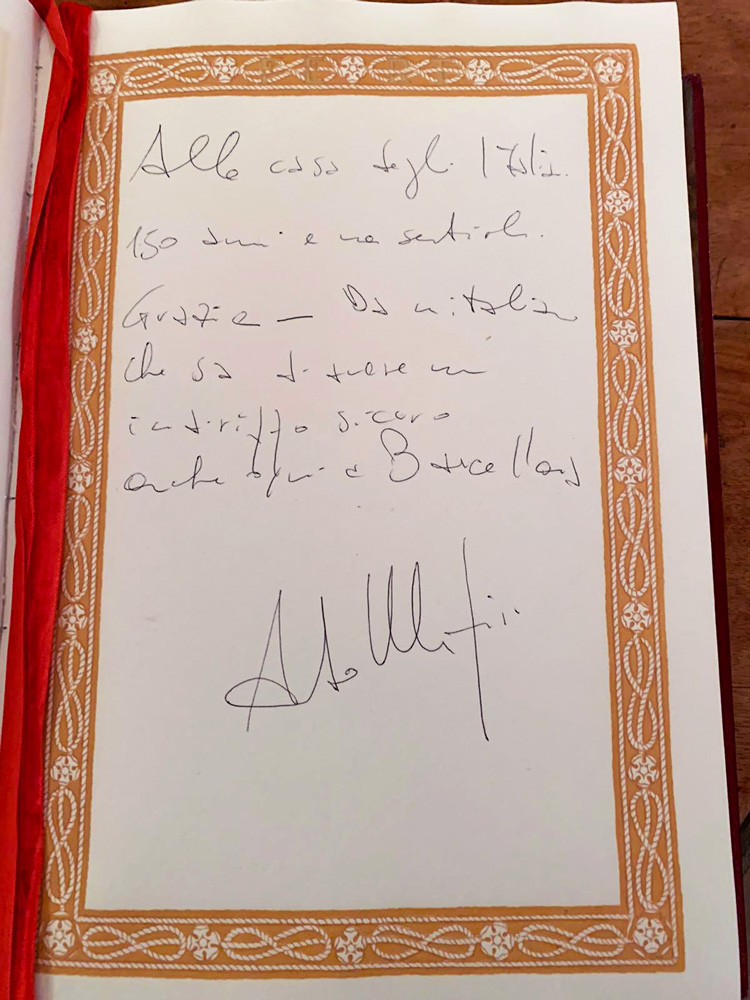 Alla casa degli Italia.
150 anni e non sentirli.
Grazie — Da un italiano
che sa di avere un
indirizzo sicuro
anche qui a Barcellona